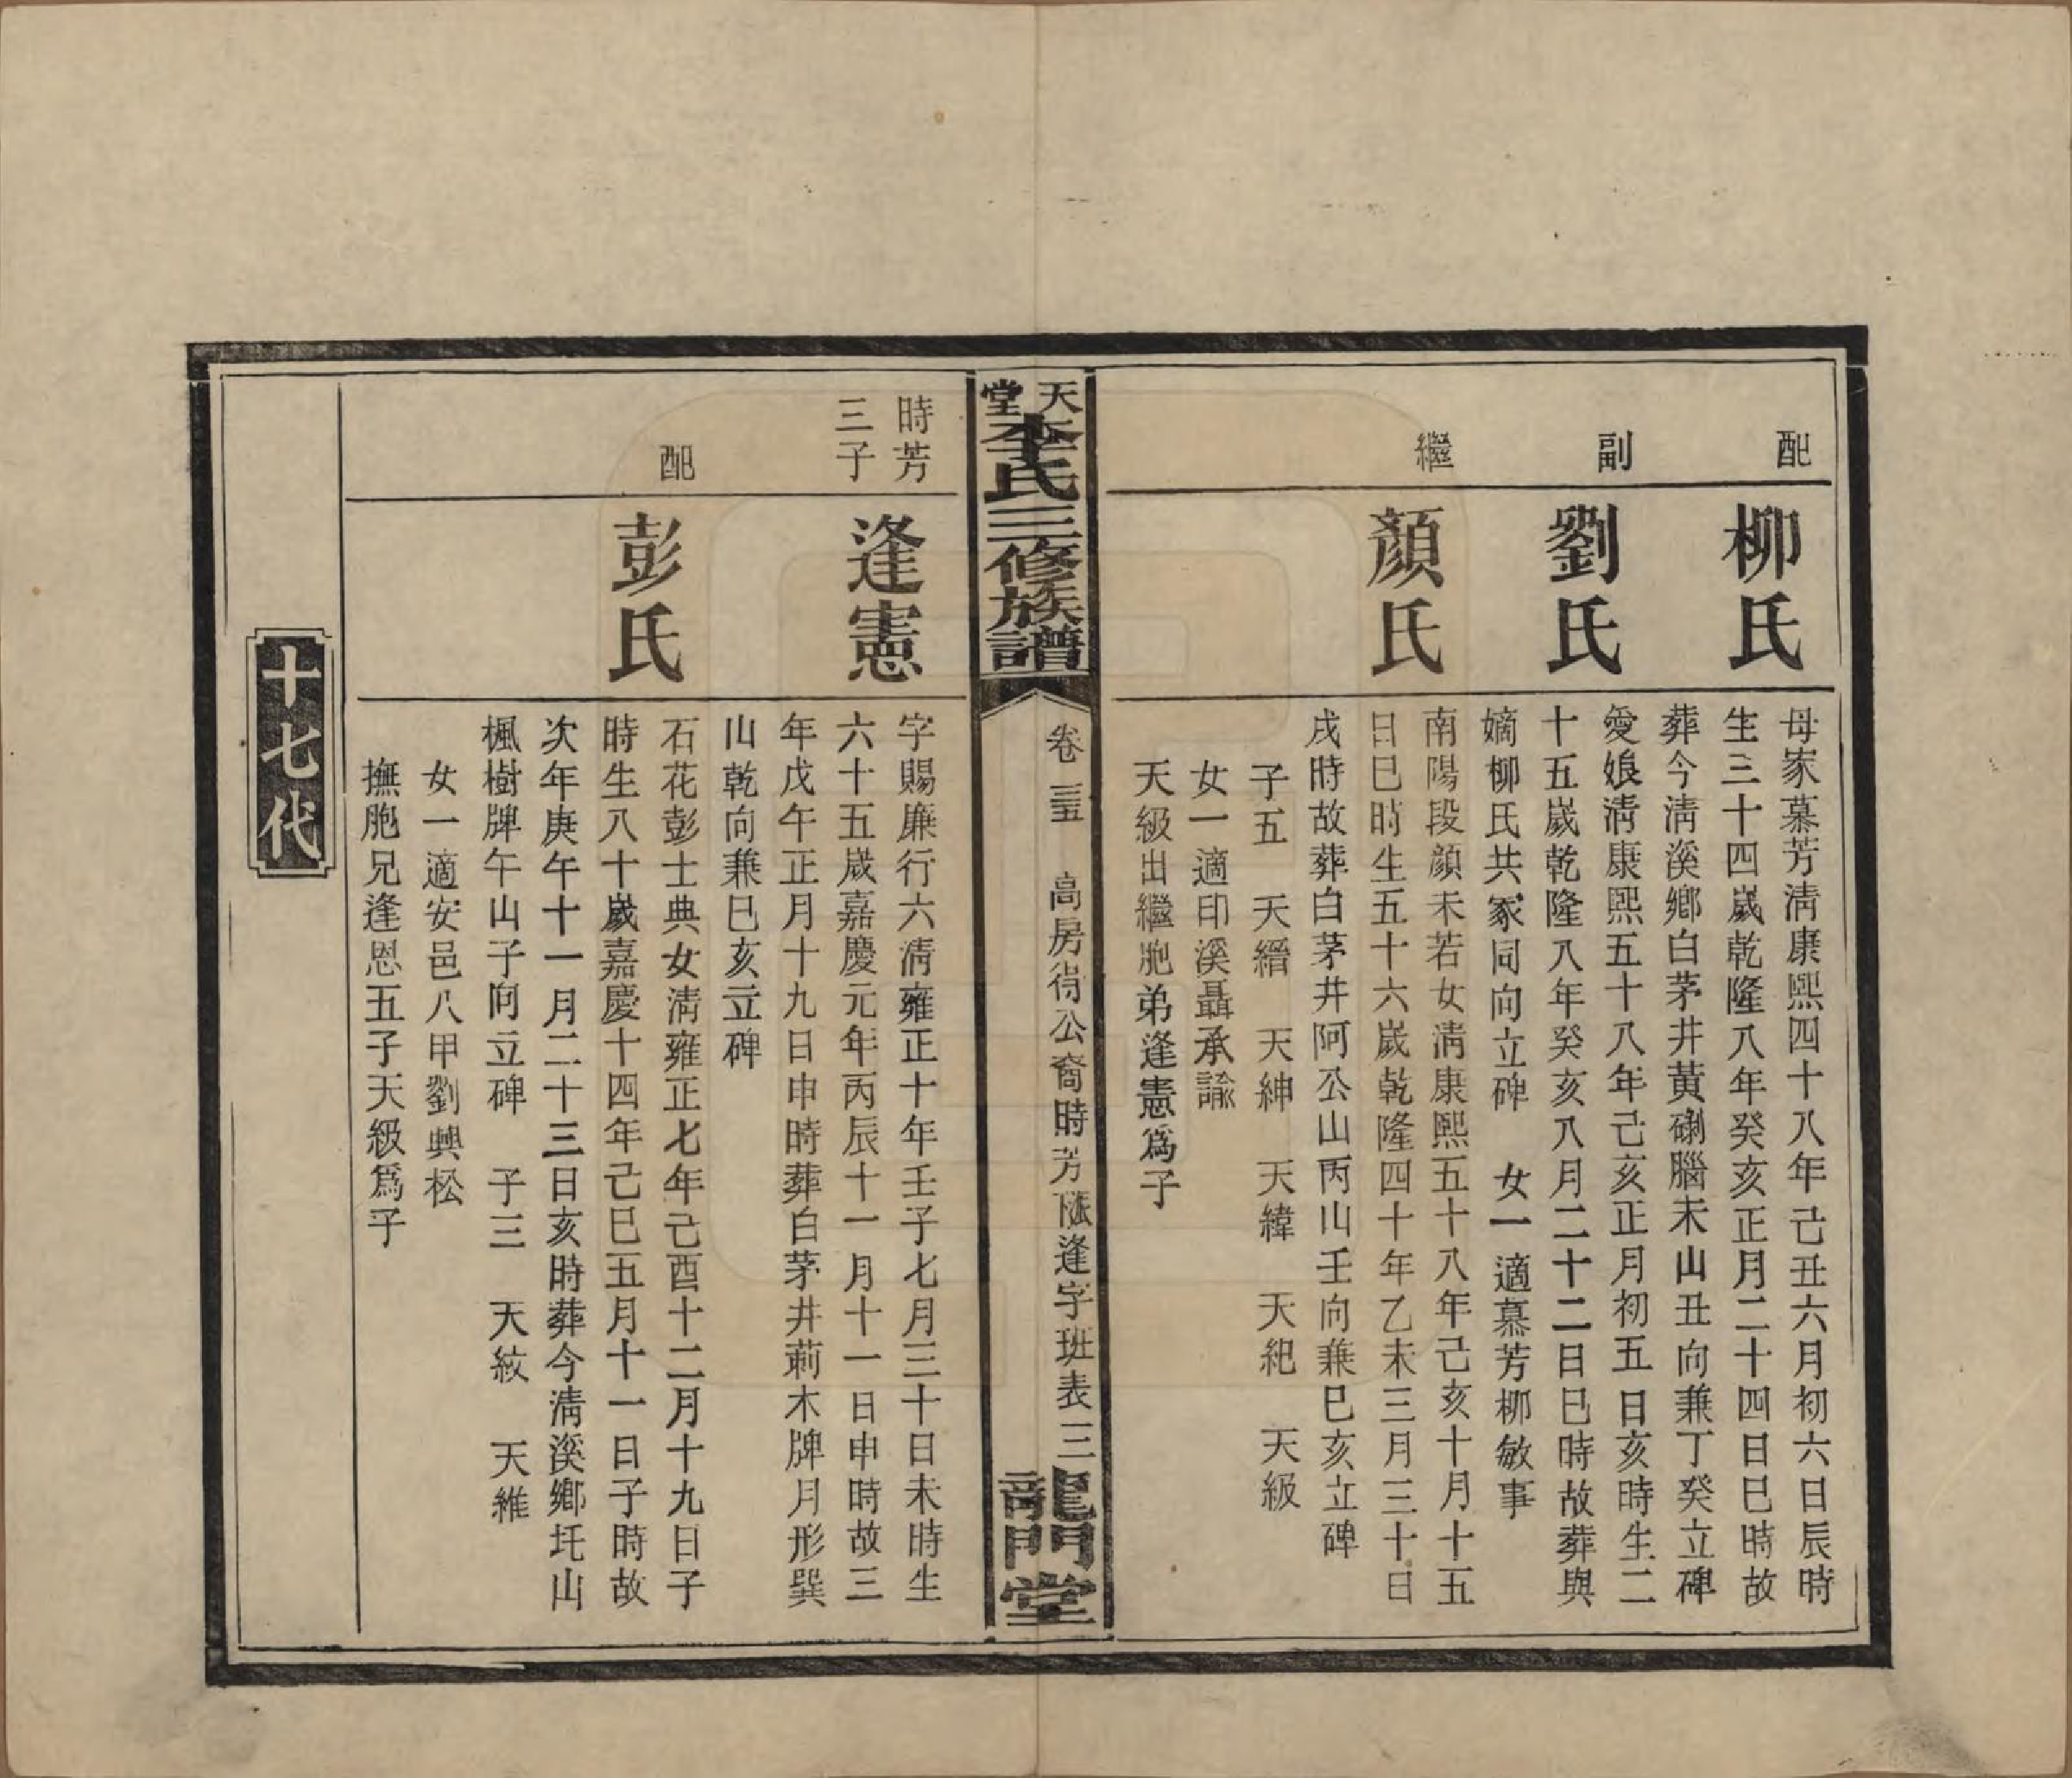 配
柳氏
母家慕芳淸康熙四十八年己丑六月初六日辰時
生三十四歲乾隆八年癸亥正月二十四日巳時故
葬今淸溪鄉白茅井黃磡腦未山丑向兼丁癸立碑
副
劉氏
愛娘淸康熙五十八年己亥正月初五日亥時生二
十五歲乾隆八年癸亥八月二十二日巳時故葬與
嫡柳氏共冢同向立碑 女一適慕芳柳敏事
繼
顏氏
南陽段顏未若女淸康熙五十八年己亥十月十五
日巳時生五十六歲乾隆四十年乙未三月三十日
戌時故葬白茅井阿公山丙山壬向兼巳亥立碑
子五 天縉 天紳 天緯 天紀 天級
女一適印溪聶承諭
天級出繼胞弟逢憲爲子
天堂李氏三修族譜
卷三五
高房待公裔時芳𠂢逢字班表三
龍門堂
時芳
三子
逢憲
字賜廉行六淸雍正十年壬子七月三十日未時生
六十五歲嘉慶元年丙辰十一月十一日申時故三
年戊午正月十九日申時葬白茅井莿木牌月形巽
山乾向兼巳亥立碑
配
彭氏
石花彭士典女淸雍正七年己酉十二月十九日子
時生八十歲嘉慶十四年己巳五月十一日子時故
次年庚午十一月二十三日亥時葬今淸溪鄉圫山
楓樹牌午山子向立碑 子三 天紋 天維
女一適安邑八甲劉興松
撫胞兄逢恩五子天級爲子
十七代